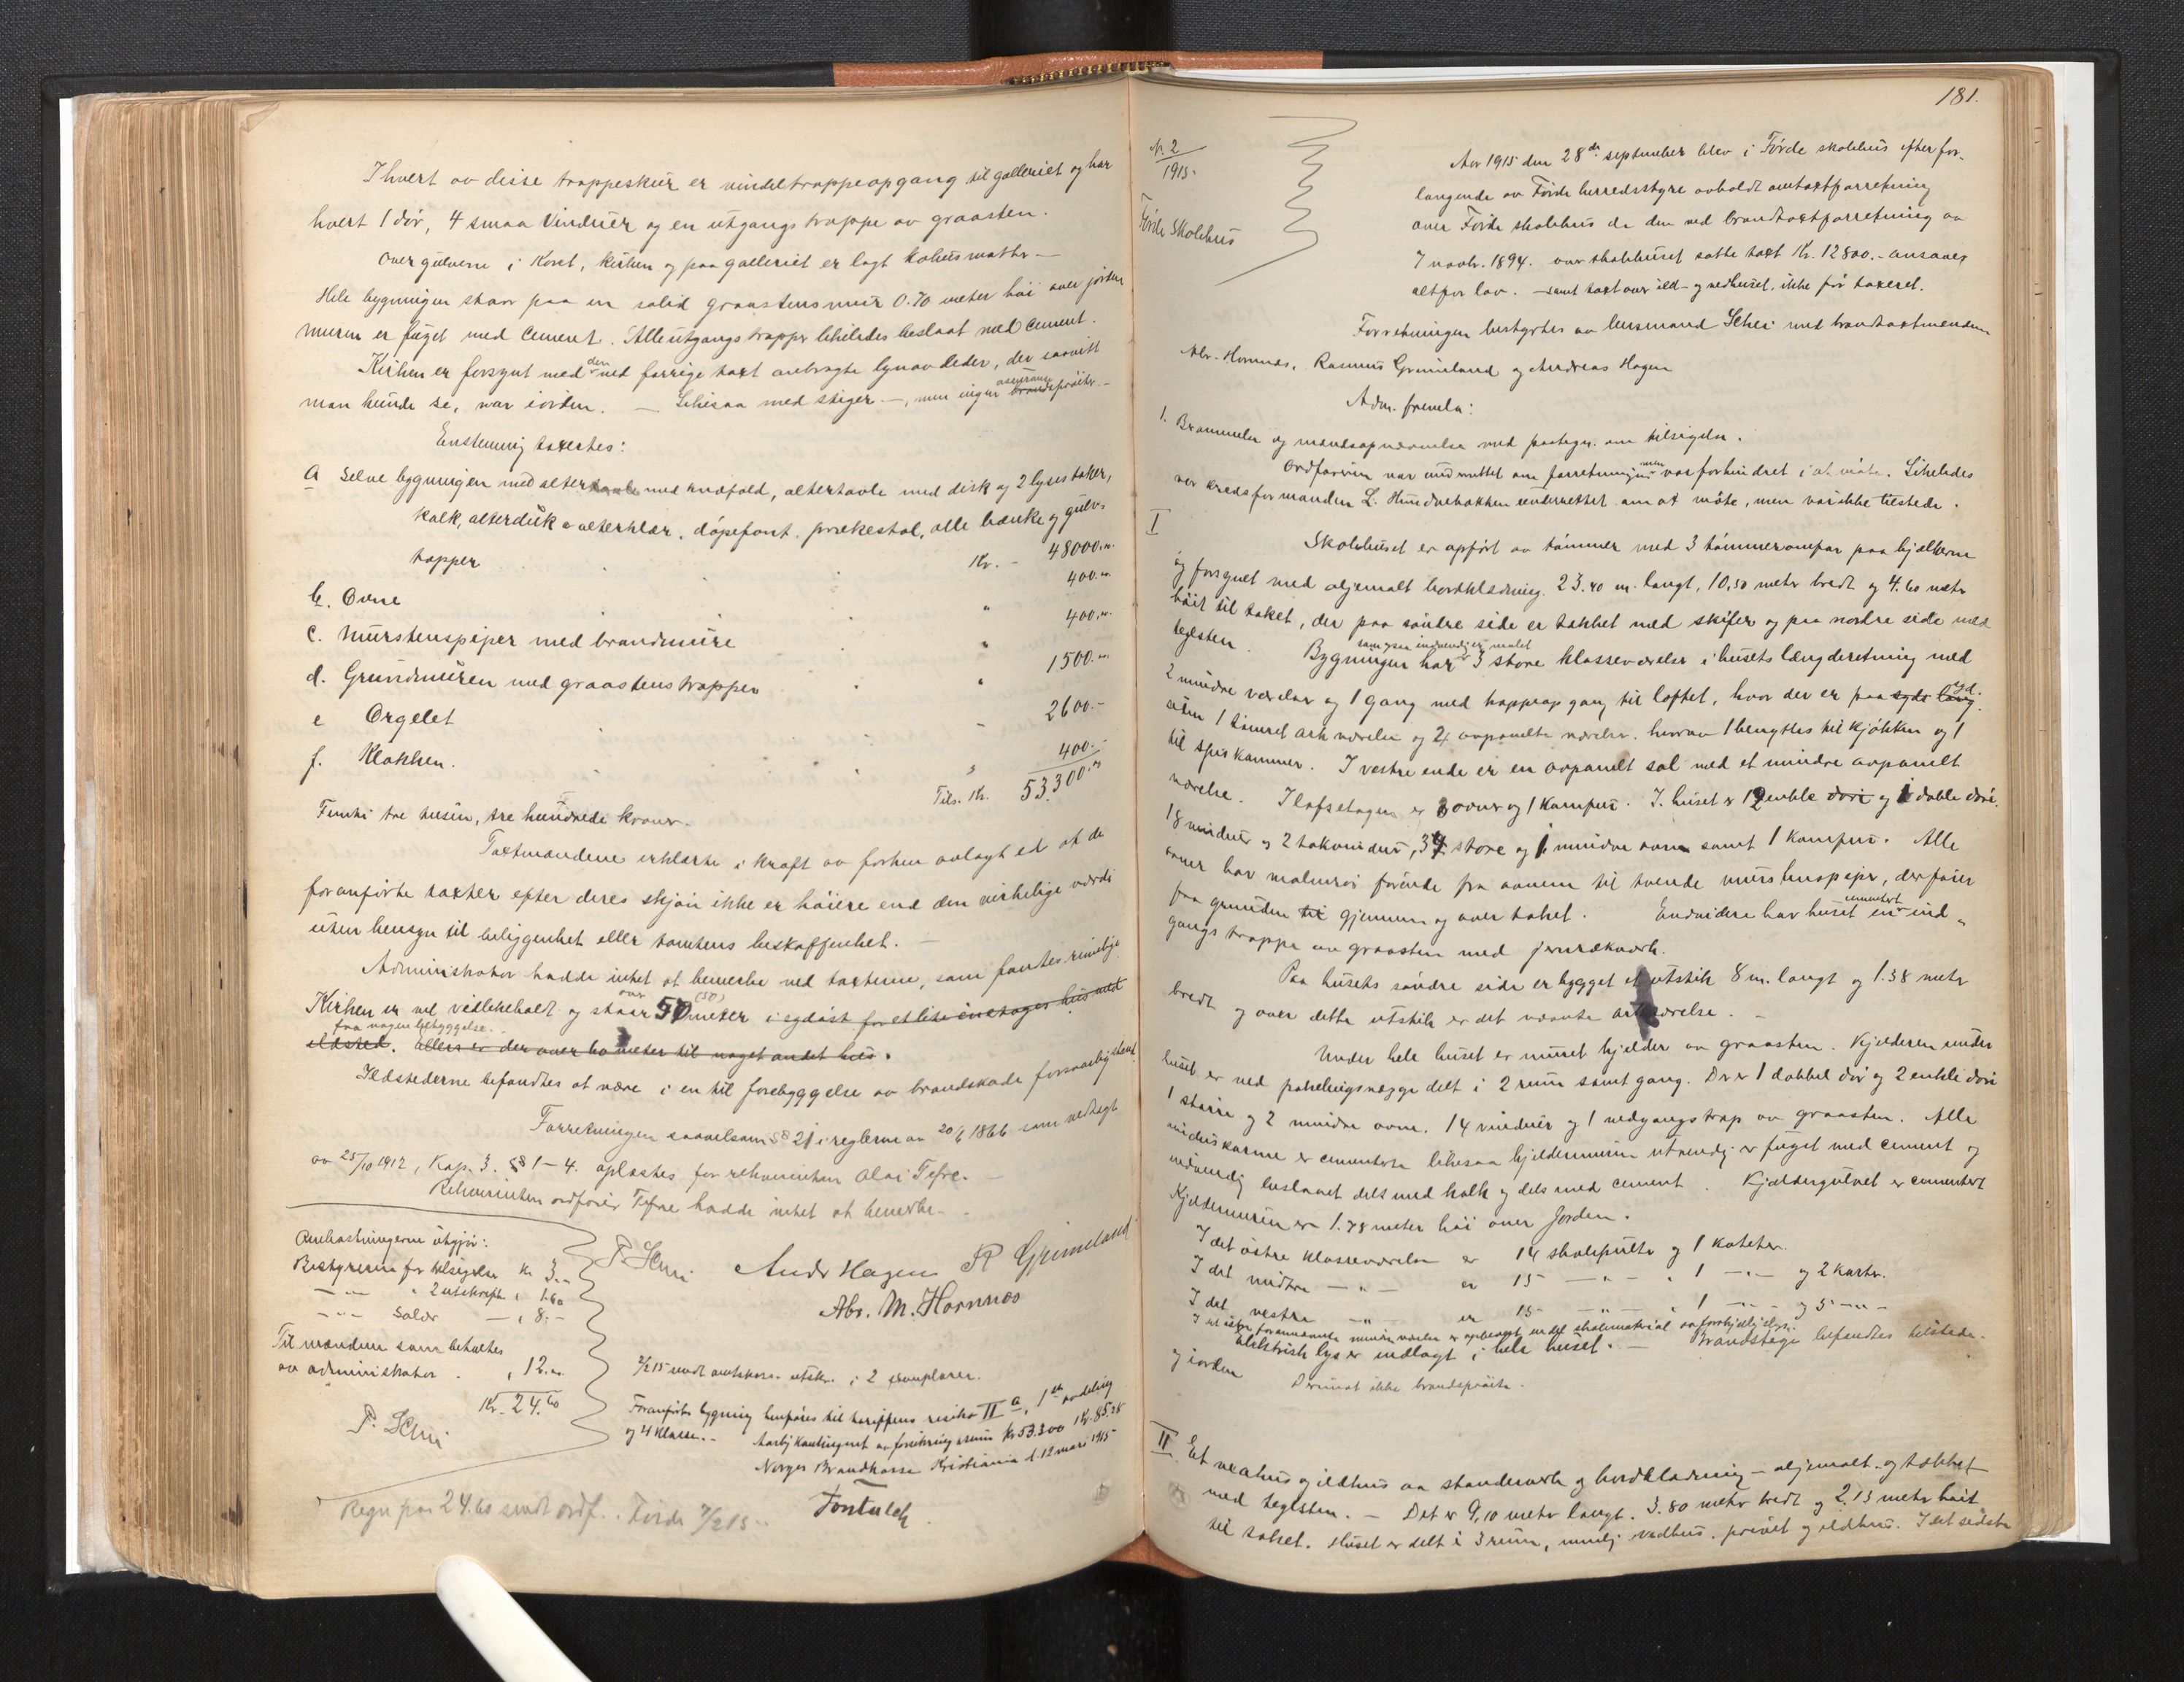 I hvert av disse trappeskur er vindeltrappeopgang til galleriet og har
hvert 1 dör, 4 smaa Vinduer og en utgangs trappe av graasten.
Over gulvene i Koret, kirken og paa galleriet er lagt kokusmatter -
Hele bygningen staar paa en solid graastensmur 0.70 meter höi over jorden
muren er fuget med cement. Alle utgangs trapper likeledes beslaat med cement.
Kirken er forsynt med den ved forrige taxt anbragte lynavleder, der saavitt
man kunde se, var iorden. - Likesaa med stiger. -, men ingen brandspröite. -
Enstemmig taxertes:
a Selve bygningen med alter med knæfald, altertavle med disk og 2 lysestaker,
kalk, alterduk & alterklær, döpefont, prækestol, alle bænke og gulv-
tepper Kr. - 48000.00
b. Ovne " 400.00
c. Murstenspiper med brandmure " 400.00
d. Grundmuren med graastenstrapper " 1500.00
e Orgelet - 2600.-
f. Klokken. " 400.-
Tils. Kr. 53.300.00
Femti tre tusin, tre hundrede kroner.
Taxtmændene erklærte i kraft av forhen avlagt ed at de
foranförte taxter efter deres skjön ikke er höiere end den virkelige værdi
uten hensyn til beliggenhet eller tomtens beskaffenhet. -
Administrator hadde intet at bemerke ved taxterne, som fandtes rimelige.
Kirken er vel vedlikeholdt og staar over 50 (50) meter i sydöst for et lite enetages hus med
fra nogen bebyggelse.
ildsted. Ellers er der over meter til noget andet hus.
Ildstederne befandtes at være i en til forebyggelse av brandskade forsvarlig stand.
Forretningen saavelsom §§ 21 i reglerne av 20/6 1866 som vedtagt
av 25/10 1912, Kap. 3. §§ 1-4. oplæstes for rekvirenten Olai Tefre. -
Rekvirenten ordförer Tefre hadde intet at bemerke. -
Omkostningerne utgjör:
Bestyreren for tilsigelse kr 3.-
-"- " 2 utskrifter " 1.60
-"- Salær - " 8.-
Til mændene som betaltes
av administrator . " 12.00
Kr. 24.60
P. Schei
P. Schei Andr Hagen R Grimeland
Abr. M. Hornnes
2/2 15 sendt amtskass. utskr. i 2 exemplarer.
Foranförte bygning henföres til tariffens risiko II a, 1ste avdeling
og 4 Klasse. - Aarlig Kontingent av forsikringssum Kr 53.300 Kr. 85.28
Norges Brandkasse Kristiania d. 12 mars 1915
Regn. paa 24.60 sendt ordf. Förde 2/2 15 -
181.
N. 2
1915
Förde Skolehus
Aar 1915 den 28de september blev i Förde skolehus efter for-
langende av Förde herredsstyre avholdt omtaxtforretning
over Förde skolehus da den ved brandtaxtforretning av
7 novbr. 1894. over skolehuset satte taxt Kr. 12800.- ansaaes
altfor lav. - samt taxt over ild- og vedhuset, ikke för taxeret.
Forretningen bestyrtes av lensmand Schei med brandtaxtmændene
Abr. Hornnes, Rasmus Grimeland og Andreas Hagen
Adm. fremla:
1. Brammeln og mandsopnævnelse med paategn. om tilsigelse.
Ordföreren var underrettet om forretningen men var forhindret i at möte. Likeledes
var kredsformanden L. Hundvebakken underrettet om at möte, men var ikke tilstede.
I
Skolehuset er opfört av tömmer med 3 tömmeromfar paa bjelkerne
og forsynet med oljemalt bordklædning. 23.40 m. langt, 10,50 meter bredt og 4.60 meter
höit til taket, der paa söndre side er tækket med skifer og paa nordre side med
teglsten. Bygningen som ogsaa indvendig er malet har 3 store klasseværelser i husets længderetning med
2 mindre værelser og 1 gang med trappeopgang til loftet, hvor der er paa syd-
siden 1 tömret ark værelse og 2 avpanelte værelser. hvorav 1 benyttes til kjökken og 1
til spiskammer. I vestre ende er en avpanelt sal med et mindre avpanelt
værelse. I lofsetagen er 3 ovner og 1 Komfur. I huset er 12 enkle döre og 1 doble döre.
18 vinduer og 2 takvinduer, 34 store og 1 mindre ovne samt 1 komfur. Alle
ovner har malmrör förende fra ovnene til tvende murstenspiper, der förer
fra grunden til gjennem og over taket. Endvidere har huset en cementert ind-
gangs trappe av graasten med jernrækverk.
Paa husets söndre side er bygget et utstik 8 m. langt og 1.38 meter
bredt og over dette utstik er det nævnte arkværelse. -
Under hele huset er muret kjelder av graasten. Kjelderen under
huset er ved panelingsvægge delt i 2 rum samt gang. Der er 1 dobbel dör og 2 enkle döre
1 större og 2 mindre ovne. 14 vinduer og 1 nedgangstrap av graasten. Alle
vinduskarme er cementerte likesaa kjeldermuren utvendig er fuget med cement og
indvendig beslaaet dels med kalk og dels med cement. Kjeldergulvet er cementert
Kjeldermuren er 1.78 meter höi over Jorden.
I det östre klasseværelse er 14 skolepulte og 1 kateter.
I det midtre -"- er 15 -"- " 1 -"- og 2 karter.
I det vestre -"- er 15 -"- " 1 -"- og 5 -"-
I et östre forannævnte mindre værelse er opbevart endel skolemateriel av forskjellig slags.
elektrisk lys er indlagt i hele huset. - Brandstige befandtes tilstede.
og iorden Derimot ikke brandspröite.
II Et vedhus og ildhus av standerverk og bordklædning - oljemalt og tækket
med teglsten. - Det er 9,10 meter langt. 3.80 meter bredt og 2,15 meter höit
til taket. Huset er delt i 3 rum, nemlig vedhus, privet og ildhus. I det sidste